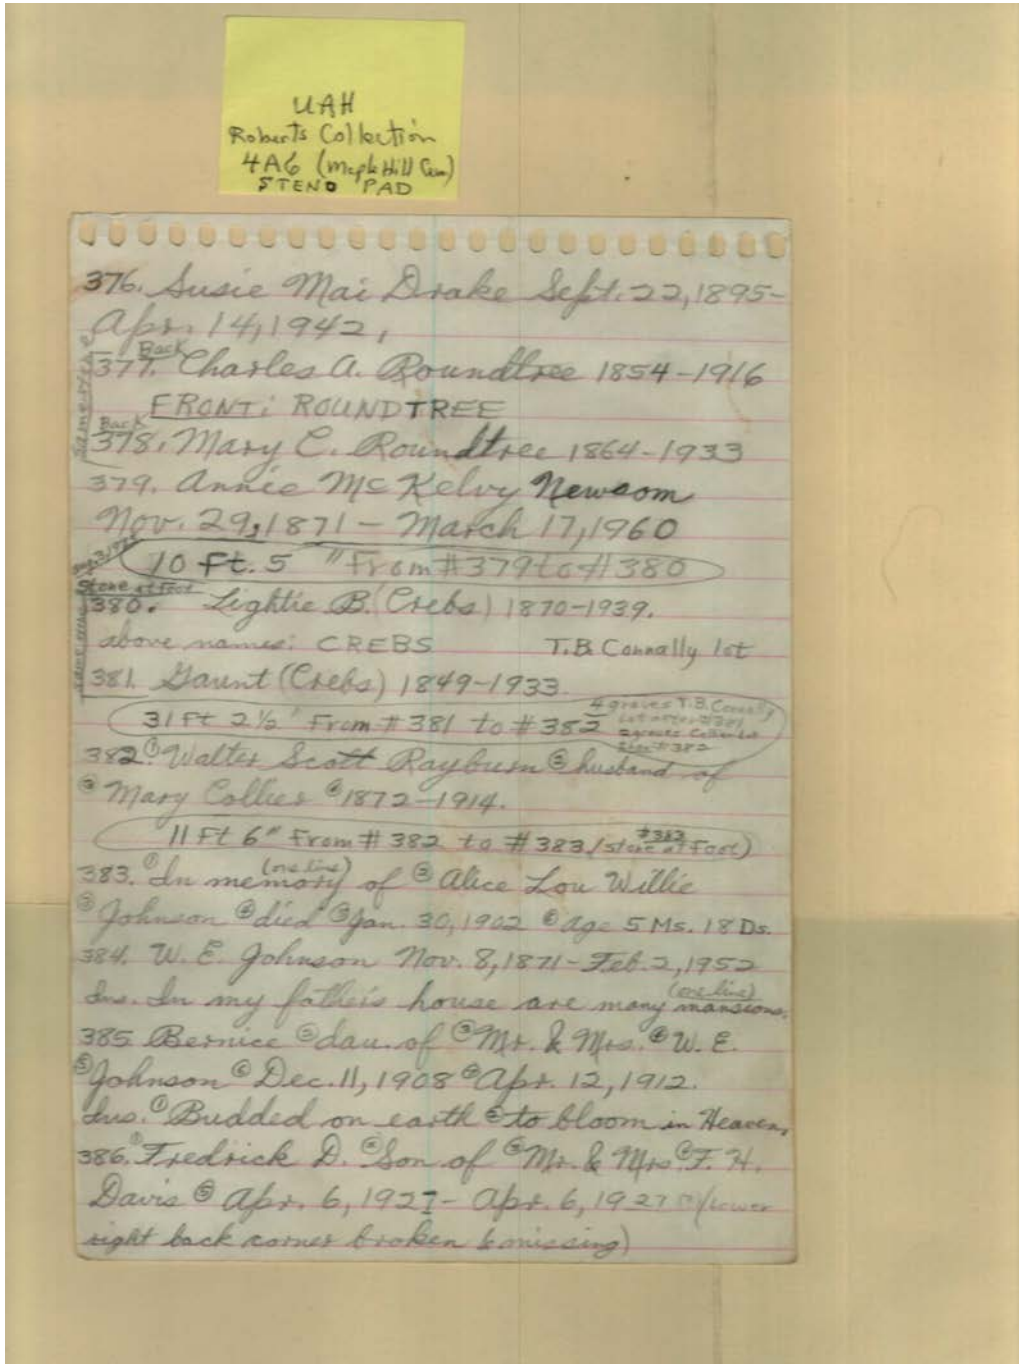 UAH
Roberts Collection
4A6 (Maple Hill Cem)
STENO PAD
376. Susie Mai Drake Sept. 22, 1895-
Apr. 14, 1942,
Back
377. Charles A. Roundtree 1854-1916
FRONT: ROUNDTREE
Same stone
Back
378. Mary C. Roundtree 1864-1933
379. Annie McKelvy Newsom
Nov. 29, 1871 - March 17, 1960
10 Ft. 5 " From #379 to #380
Stone at foot
380. Lightie B. (Crebs) 1870-1939.
above names: CREBS T.B. Connally lot
same stone
381. Gaunt (Crebs) 1849-1933
31 Ft 2 ½ " From #381 to #382
4 graves T.B. Connally
Lot after #381
2 graves Collier Lot
#382
382. ① Walter Scott Rayburn ② husband of
③ Mary Collier ④ 1872-1914.
11 Ft 6" From #382 to #383 (#383 stone at Foot)
383. ① In memory (one line) of ② Alice Lou Willie
③ Johnson ④ died ⑤ Jan. 30, 1902 ⑥ age 5 Ms. 18 Ds.
384. W. E. Johnson Nov. 8, 1871 - Feb. 2, 1952
Ins. In my father's house are many (one line) mansions.
385. Bernice ② dau. of ③ Mr. & Mrs. ④ W. E.
⑤ Johnson ⑥ Dec. 11, 1908 ⑦ Apr. 12, 1912.
Ins. ① Budded on earth ② to bloom in Heaven.
386. ① Fredrick D. ② Son of ③ Mr. & Mrs ④ F. H.
Davis ⑤ Apr. 6, 1927 - Apr. 6, 1927 (lower
right back corner broken & missing)